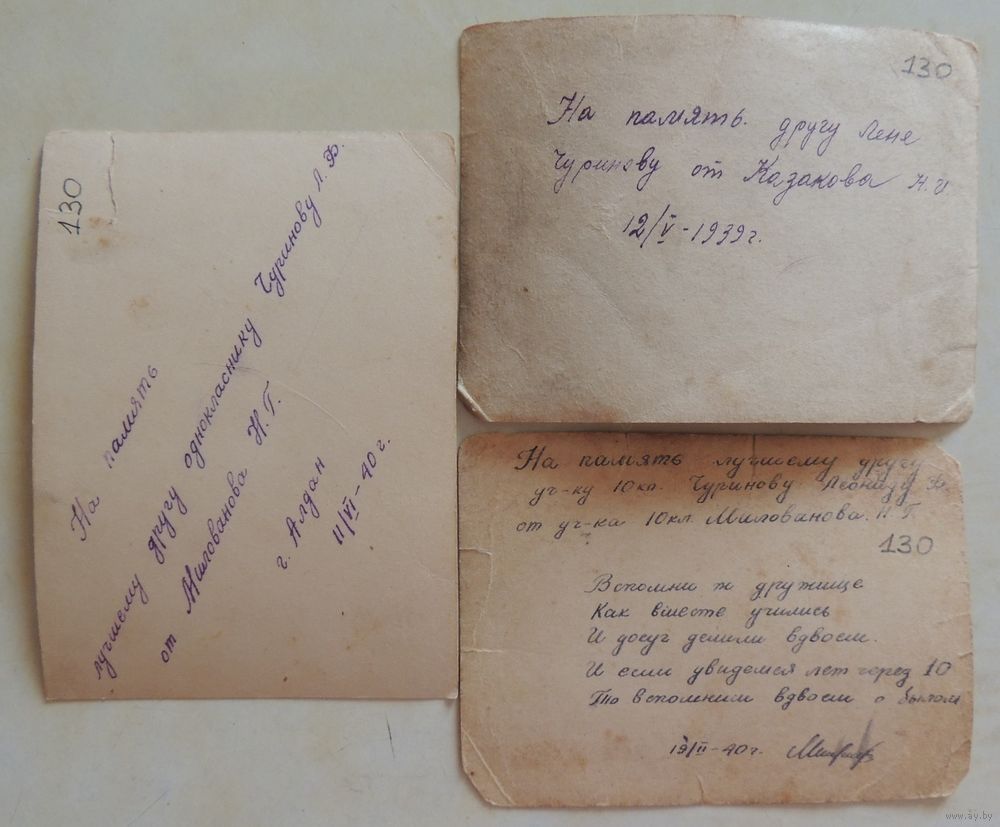 130
На память
лучшему другу однокласнику Чуринову Л. Ф.
от Милованова Н. Г.
г. Алдан
11/VI-40 г.
130
На память другу Лене
Чуринову от Казакова Н. И.
12/V-1939 г.
На память лучшему другу
уч-ку 10 кл. Чуринову Леониду Ф
от уч-ка 10 кл. Милованова. Н. Г.
130
Вспомни ж дружище
Как вместе учились
И досуг делили вдвоем.
И если увидемся лет через 10
То вспомним вдвоем о былом
19/II-40 г.
www.ay.by